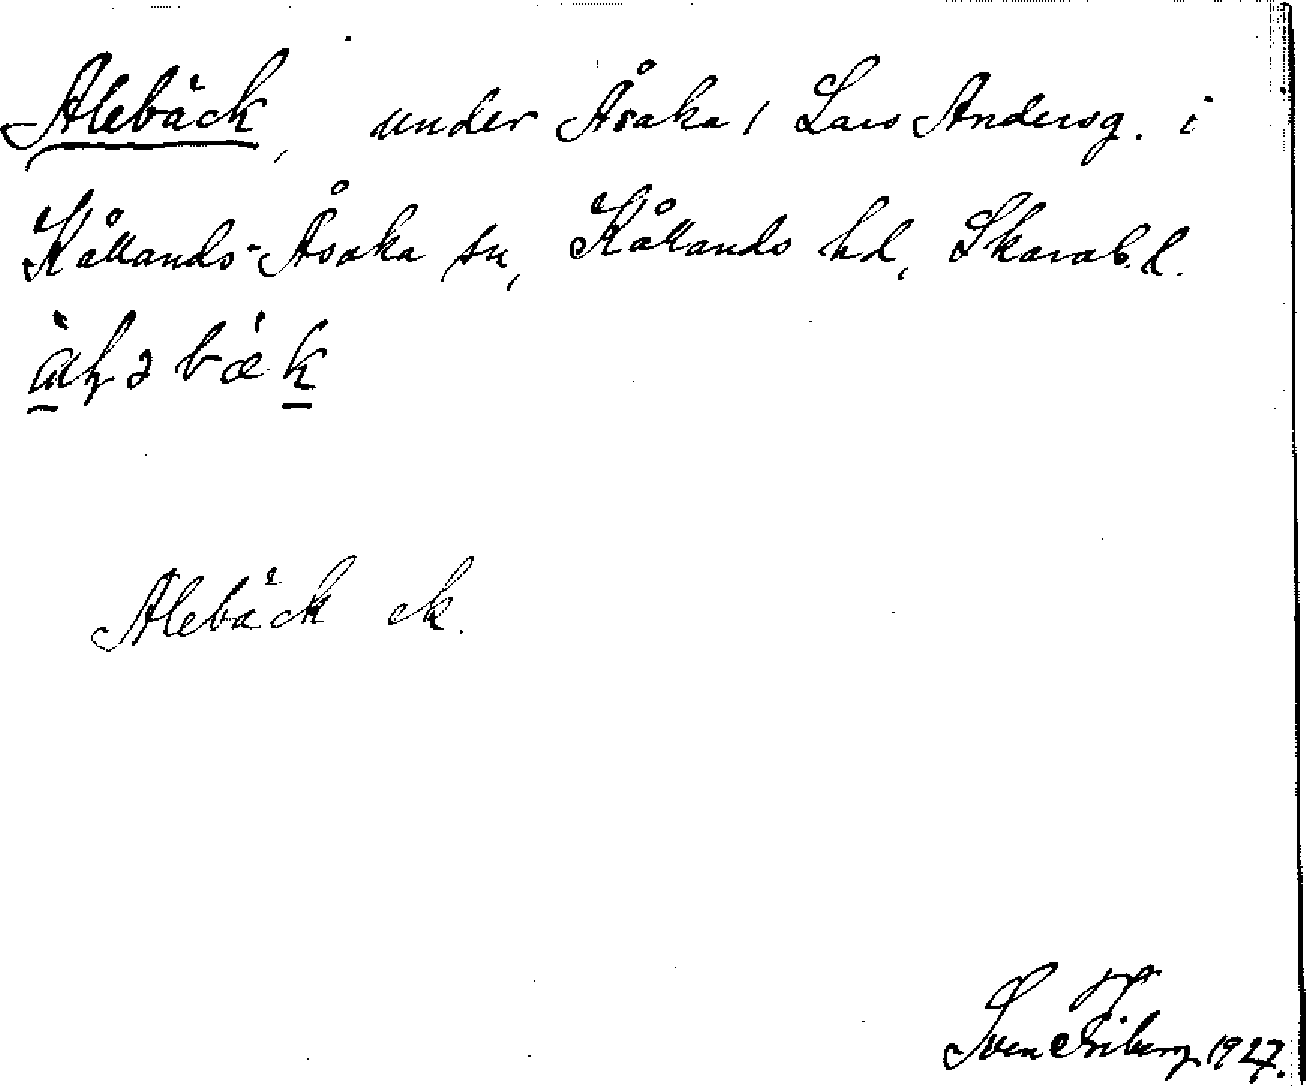 Alebäck, under Åsaka, Lars Andersg. i
Kållands-Åsaka sn, Kållands hd, Skarab. l.
Alebäck ek.
Sven Friberg 1927.